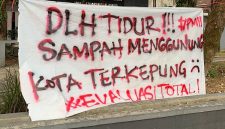 DLH TIDUR!!! #PMII
SAMPAH MENGGUNUNG
KOTA TERKEPUNG :(
#EVALUASI TOTAL!